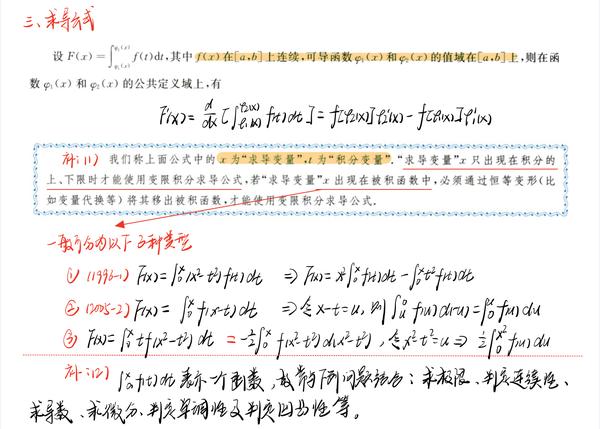 三、求导公式
设 F(x)=∫_{φ₁(x)}^{φ₂(x)} f(t)dt,其中 f(x)在[a,b]上连续,可导函数 φ₁(x)和 φ₂(x)的值域在[a,b]上,则在函
数 φ₁(x)和 φ₂(x)的公共定义域上,有
F'(x) = d/dx [∫_{φ₁(x)}^{φ₂(x)} f(t)dt] = f[φ₂(x)]φ₂'(x) - f[φ₁(x)]φ₁'(x)
注(1) 我们称上面公式中的 x 为“求导变量”,t 为“积分变量”.“求导变量”x 只出现在积分的
上、下限时才能使用变限积分求导公式,若“求导变量”x 出现在被积函数中,必须通过恒等变形(比
如变量代换等)将其移出被积函数,才能使用变限积分求导公式.
一般可分为以下三种类型
① (1996-1) F(x) = ∫₀ˣ (x²-t²)f(t)dt ⇒ F(x) = x²∫₀ˣ f(t)dt - ∫₀ˣ t²f(t)dt
② (2005-2) F(x) = ∫₀ˣ f(x-t)dt ⇒ 令 x-t=u, 则 ∫ₓ⁰ f(u)d(-u) = ∫₀ˣ f(u)du
③ F(x) = ∫₀ˣ tf(x²-t²)dt = -½∫₀ˣ f(x²-t²)d(x²-t²), 令 x²-t²=u ⇒ ½∫₀^{x²} f(u)du
注(2) ∫₀ˣ f(t)dt 表示一个函数, 故常与下列问题结合：求极限、判定连续性、
求导数、求微分、判定单调性及判定凹凸性等。